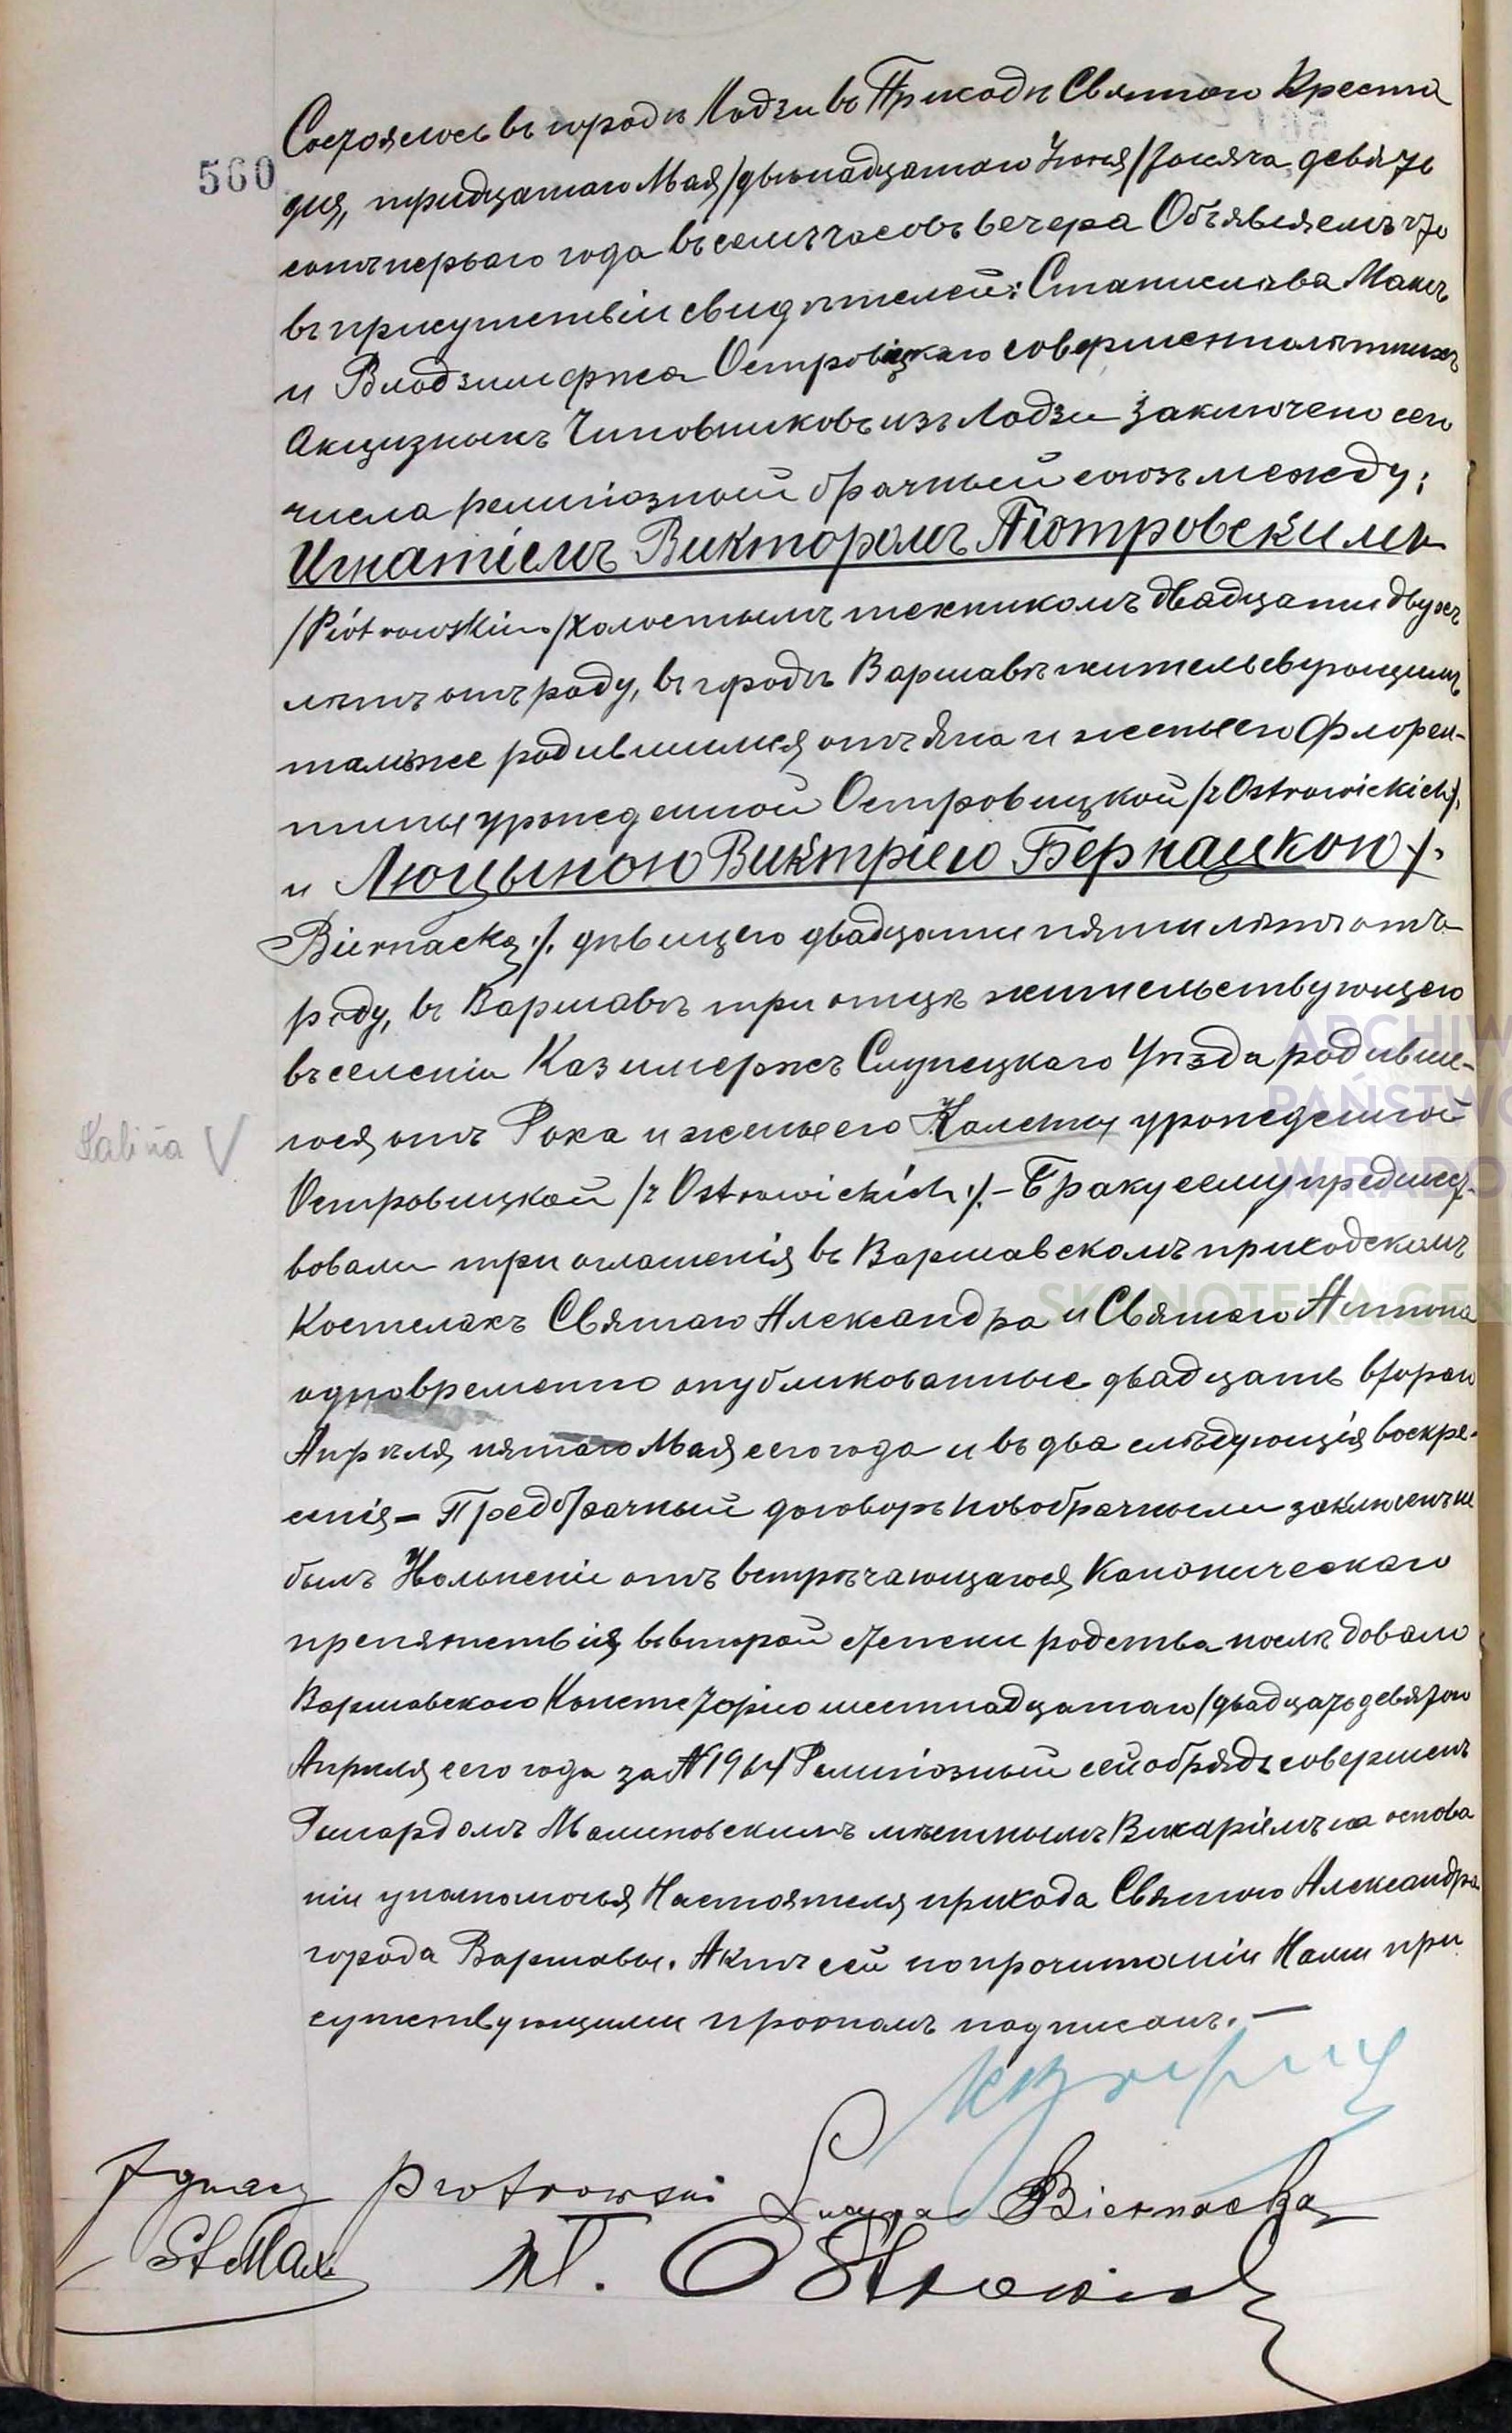 560
Состоялось въ городѣ Лодзи въ Приходѣ Святого Креста
дня, тридцатаго Мая /двѣнадцатаго Іюня/ тысяча девять
сотъ перваго года въ семь часовъ вечера Объявляемъ что
въ присутствіи свидѣтелей: Станислава Макъ
и Влодзимержа Островицкаго совершеннолѣтнихъ
Акцизныхъ Чиновниковъ изъ Лодзи заключено сего
числа религіозный брачный союзъ между:
Игнатіемъ Викторомъ Піотровскимъ
/Piótrowskim/ холостымъ техникомъ двадцати двухъ
лѣтъ отъ роду, въ городѣ Варшавѣ жительствующимъ
тамъже родившимся отъ Яна и жены его Флорен-
тины урожденной Островицкой /z Ostrowickich/.
и Люцыною Викторіею Бернацкою /.
Biernacką ./. дѣвицею двадцати пяти лѣтъ отъ
роду, въ Варшавѣ при отцѣ жительствующею
въ селеніи Казимержъ Слупецкаго Уѣзда родивше-
Kalina V
юся отъ Роха и жены его Калены урожденной
Островицкой /z Ostrowickich ./. - Браку сему предшест-
вовали три оглашенія въ Варшавскомъ приходскомъ
Костелахъ Святаго Александра и Святаго Антона
одновременно опубликованные двадцать втораго
Апрѣля пятаго Мая сего года и въ два слѣдующія воскре-
сенія - Предбрачный договоръ новобрачными заключенъ не
былъ Увольненіе отъ встрѣчающагося Каноническаго
препятствія во второй степени родства послѣдовало
Варшавского Консисторіею шестнадцатаго /двадцать девятого
Апрѣля сего года за № 1964 Религіозный сей обрядъ совершенъ
Рышардомъ Малиновскимъ мѣстнымъ Викаріемъ на основа
ніи уполномочія Настоятеля прихода Святого Александра
города Варшавы. Актъ сей по прочитаніи Нами при
сутствующими подписанъ. —
Ignacy Piotrowski Lucyna Biernacka
St Max W. Ostrowicki